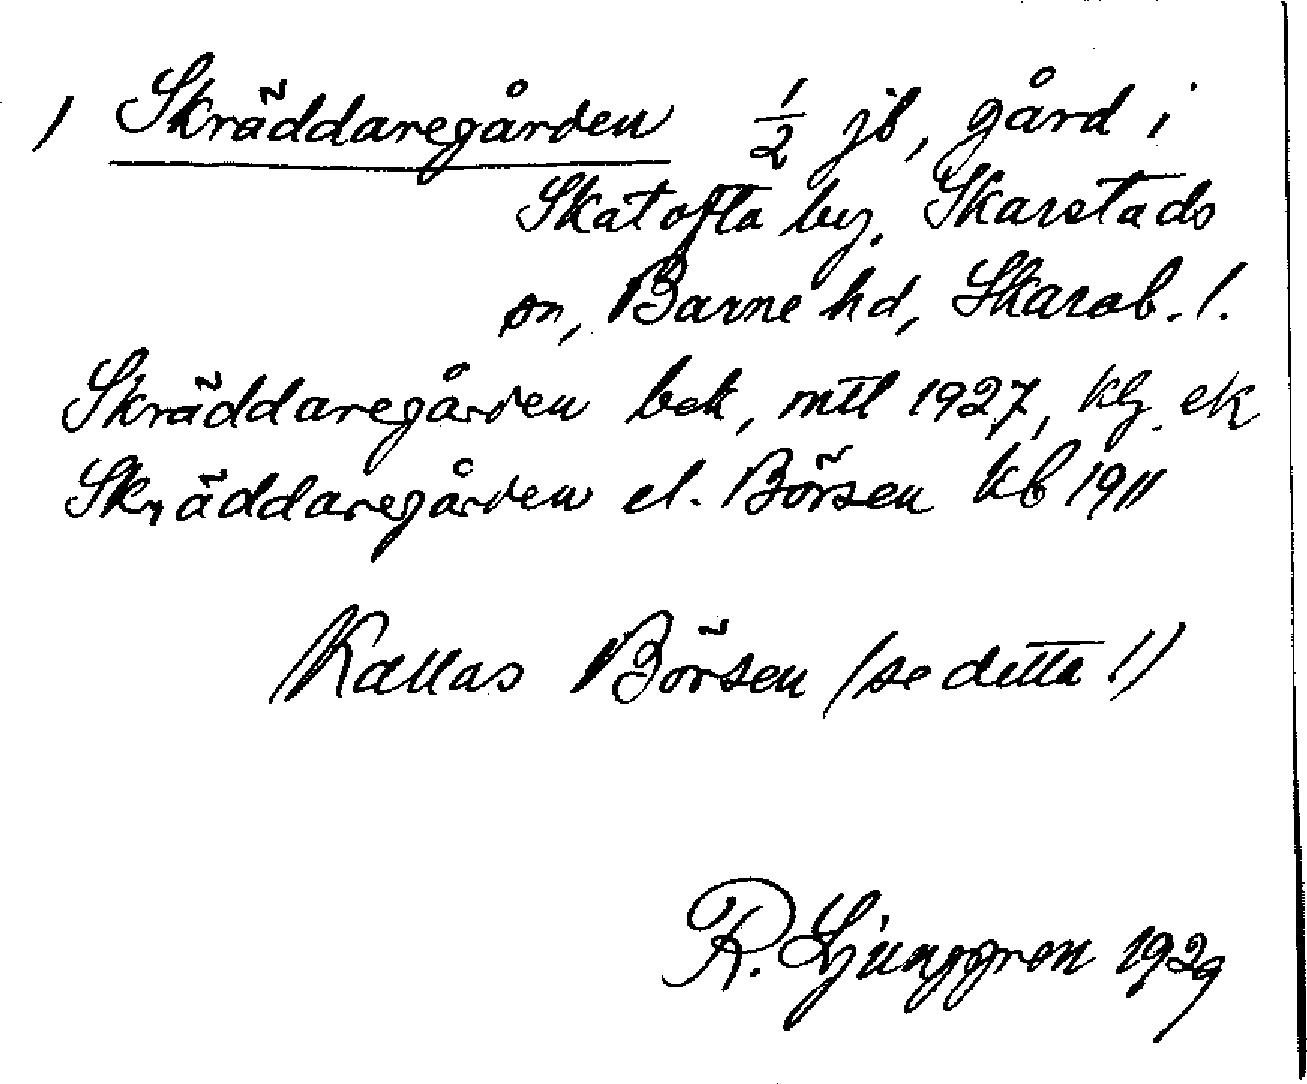 / Skräddaregården 1/2 jb, gård i
Skatofta by. Skarstads
sn, Barne hd, Skarab. l.
Skräddaregården bek, mtl 1927, kg. ek
Skräddaregården el. Börsen kb 1911
Kallas Börsen (se detta!)
R. Ljunggren 1929